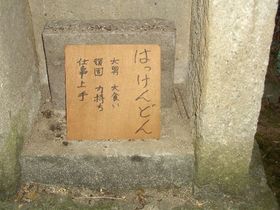 はっけんどん
大男 大食い
頑固 力持ち
仕事上手